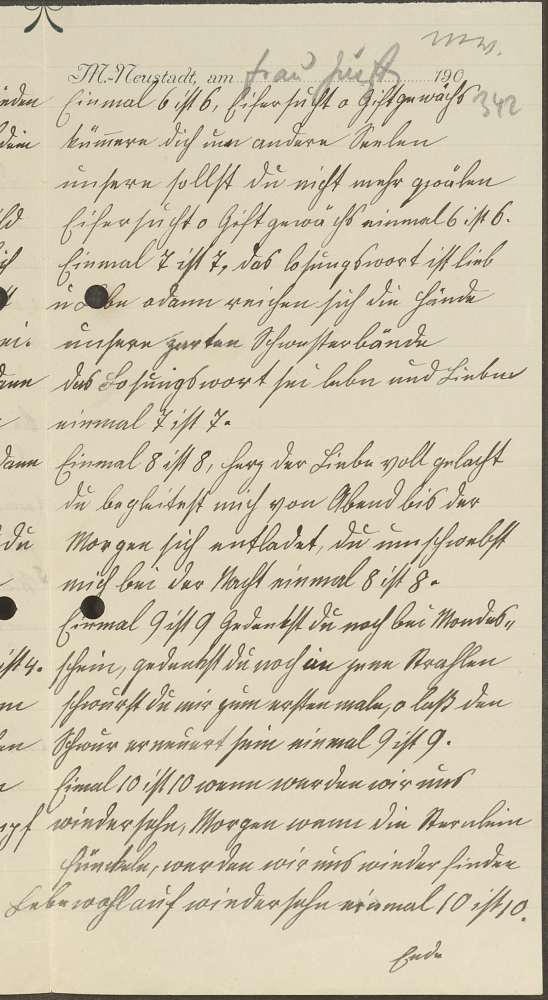 nw.
M.-Neustadt, am Frau Just 190
342
Einmal 6 ist 6, Eifersucht o Giftgewächs
kümere dich um andere Seelen
unsere sollst du nicht mehr quälen
Eifersucht o Giftgewächs einmal 6 ist 6.
Einmal 7 ist 7, das losungswort ist lieb
odann reichen sich die Hände
unsere zarten Schwesterbände
das Losungswort sei leben und Lieben
einmal 7 ist 7.
Einmal 8 ist 8, herz der Liebe voll gelacht
du begleitest mich von Abend bis der
Morgen sich entladet, du umschwebst
mich bei der Nacht einmal 8 ist 8.
Einmal 9 ist 9 Gedenkst du noch bei Mondes-
schein, gedenkst du noch in jene Strahlen
schwurst du mir zum ersten male, o laß den
Schwur erneuert sein einmal 9 ist 9.
Eimal 10 ist 10 wenn werden wir uns
wiedersehn, Morgen wenn die Sternlein
funckeln, werden wir uns wieder finden
Lebewohl auf wiedersehn einmal 10 ist 10.
Ende